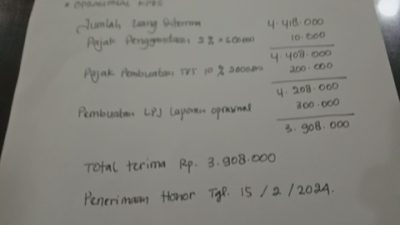 * Oprasional KPPS
Jumlah uang diterima 4.418.000
Pajak Penggandaan 2% x 600000 10.000
4.408.000
Pajak Pembuatan TPS 10% 2000000 200.000
4.208.000
Pembuatan LPJ Laporan oprasional 300.000
3.908.000
Total terima Rp. 3.908.000
Penerimaan Honor Tgl. 15 / 2 / 2024.